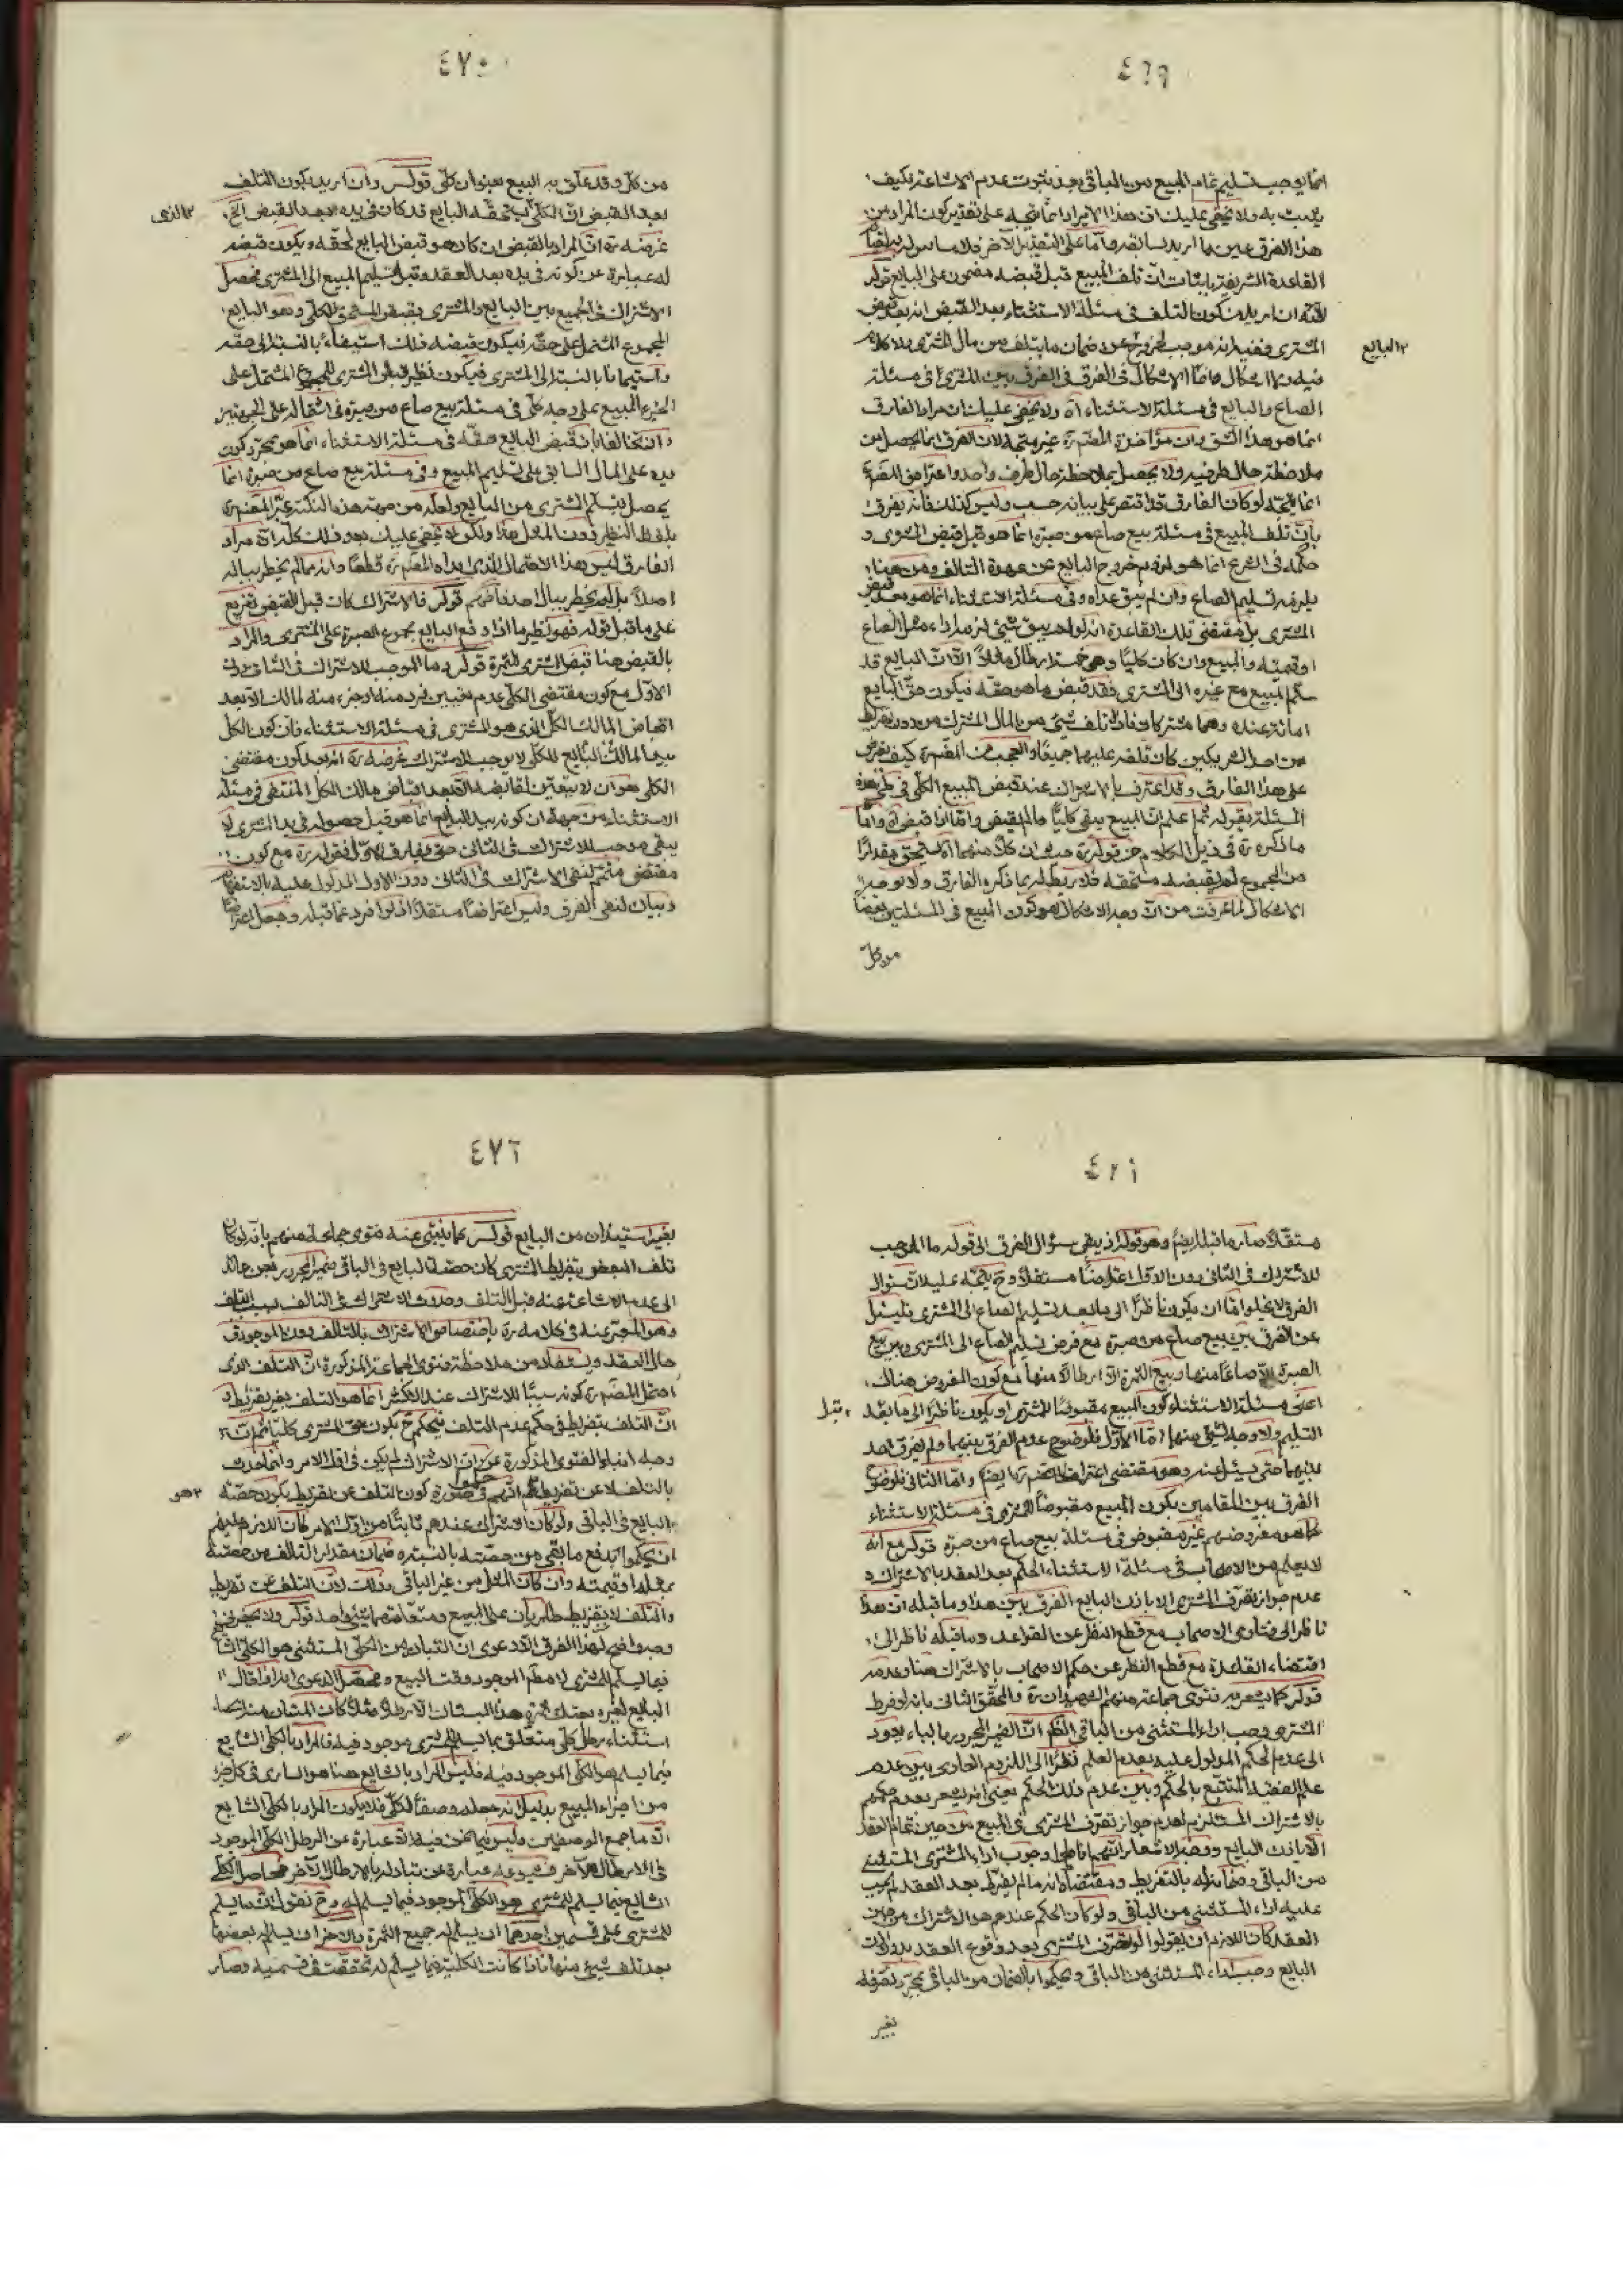 ٤٦٩
انما يوجب تسليم تمام المبيع من الباقي بعد ثبوت عدم الاشاعة فكيف
يثبت به ولا يخفى عليك ان هذا الايراد انما يتجه على تقدير كون المراد من
هذا الفرق عين ما اريد بسابقه واما على التقدير الآخر فلا مساس له
القاعدة الشريفة باثبات ان تلف المبيع قبل قبضه مضمون على البايع قوله
لانه ان اريد من كون التلف في مسئلة الاستثناء بعد القبض انه بعد قبض
المشتري ففيه انه موجب لخروج عن ضمان ما يتلف من مال المشتري ولا كلام
البايع
فيه ولا اشكال وانما الاشكال في الفرق في الفرق بين المشتري في مسئلة
الصاع والبايع في مسئلة الاستثناء اه ولا يخفى عليك ان مراد الفارق
انما هو هذا الشق وان مؤاخذة المصنف ره غير متجهة لان الفرق انما يحصل من
ملاحظة حال طرفيه ولا يحصل بملاحظة حال طرف واحد واعتراض المصنف ره
انما يتجه لو كان الفارق قد اقتصر على بيانه حسب وليس كذلك فانه يفرق
بان تلف المبيع في مسئلة بيع صاع من صبرة انما هو قبل قبض المشتري و
حكمه في الشرع انما هو لزوم خروج البايع عن عهدة التالف ومن هنا
يلزمه تسليم الصاع وان لم يبق عداه وفي مسئلة الاستثناء انما هو بعد قبض
المشتري بل مقتضى تلك القاعدة انه لو لم يبق شيء لزم اداء مثل الصاع
او قيمته والمبيع وان كان كليا وهي خمسة ارطال مثلا الا ان البايع قد
سلم المبيع مع غيره الى المشتري فقد قبض ما هو حقه فيكون حق البايع
امانة عنده وهما مشتركان فاذا تلف شيء من المال المشترك من دون تفريط
من احد الشريكين كان تلفه عليهما جميعا والعجب من المصنف ره كيف يعترض
على هذا الفارق وقد اعترف بالاشتراك عند قبض المبيع الكلي في هذه
المسئلة بقوله ثم اعلم ان المبيع يبقى كليا ما لم يقبض واما اذا قبض اه واما
ما ذكره ره في ذيل الكلام من قوله ره حيث ان كلا منهما اه يستحق مقدارا
من المجموع لم يقبضه مستحقه فلا ربط له بما ذكره الفارق ولا يوجب
الاشكال لما عرفت من ان وجه الاشكال هو كون المبيع في المسئلتين بعضا
من كل
٤٧٠
من كل وقد علق به البيع بعنوان كلي قوله وان اريد بكون التلف
بعد القبض ان الكلي الذي يستحقه البايع قد كان في يده بعد القبض الخ
الذي
غرضه ره ان المراد بالقبض ان كان هو قبض البايع لحقه ويكون قبضه
له عبارة عن كونه في يده بعد العقد وقبل تسليم المبيع الى المشتري فيحصل
الاشتراك في الجميع بين البايع والمشتري بقبض المستحق للكلي وهو البايع
المجموع المشتمل على حقه فيكون قبضه ذلك استيفاء بالنسبة الى حقه
واستيمانا بالنسبة الى المشتري فيكون نظير قبض المشتري للمجموع المشتمل على
الجزء المبيع على وجه كلي في مسئلة بيع صاع من صبرة في اشتماله على الجهتين
وان تخالفا بان قبض البايع حقه في مسئلة الاستثناء انما هو بمجرد كون
يده على المال السابق على تسليم المبيع وفي مسئلة بيع صاع من صبرة انما
يحصل بتسلم المشتري من البايع ولعله من جهة هذه النكتة عبر المصنف ره
بلفظ النظير دون المثل هذا ولكن لا يخفى عليك بعد ذلك كله ان مراد
الفارق ليس هذا الاحتمال الذي ابداه المصنف ره قطعا وانه مما لم يخطر بباله
اصلا بل لم يخطر ببال احد فافهم قوله فالاشتراك كان قبل القبض تفريع
على ما قبل قوله فهو نظير ما اذا دفع البايع مجموع الصبرة على المشتري والمراد
بالقبض هنا قبض المشتري للثمرة قوله وما الموجب للاشتراك في الثاني دون
الاول مع كون مقتضى الكلي عدم تعيين فرد منه او جزء منه لمالك الا بعد
اقباض المالك الكل الذي هو المشتري في مسئلة الاستثناء فان كون الكل
بيد المالك البايع للكلي لا يوجب الاشتراك غرضه ره انه بعد كون مقتضى
الكلي هو ان لا يتعين لقابضه الا بعد اقباض مالك الكل المنتفي في مسئلة
الاستثناء من جهة ان كونه بيد البايع انما هو قبل حصوله في يد المشتري لا
يبقى موجب للاشتراك في الثاني حتى يفارق الاول فقوله ره مع كون
مقتضى متمم لنفي الاشتراك في الثاني دون الاول المدلول عليه بالاستفهام
وبيان لنفي الفرق وليس اعتراضا مستقلا اذ لو افرد عما قبله وجعل اعتراضا
٤٧١
مستقلا صار ما قبله ايضا وهو قوله اذ يبقى سؤال الفرق الى قوله ما الموجب
للاشتراك في الثاني دون الاول اعتراضا مستقلا وح يتجه عليه ان سؤال
الفرق لا يخلو اما ان يكون ناظرا الى ما بعد تسليم الصاع الى المشتري فليسئل
عن الفرق بين بيع صاع من صبرة مع فرض تسليم الصاع الى المشتري وبين بيع
الصبرة الا صاعا منها وبيع الثمرة الا ارطالا منها مع كون المفروض هناك
اعني مسئلة الاستثناء كون المبيع مقبوضا للمشتري او يكون ناظرا الى ما بعد
قبل
التسليم ولا وجه لشيء منهما اما الاول فلوضوح عدم الفرق بينهما ولم يفرق احد
بينهما حتى يسئل عنه وهو مقتضى اعتراف المصنف ره ايضا واما الثاني فلوضوح
الفرق بين المقامين بكون المبيع مقبوضا للمشتري في مسئلة الاستثناء
كما هو مفروضهم غير مقبوض في مسئلة بيع صاع من صبرة قوله مع انه
لم يعلم من الاصحاب في مسئلة الاستثناء الحكم بعد العقد بالاشتراك و
عدم جواز تصرف المشتري الا باذن البايع الفرق بين هذا وما قبله ان هذا
ناظر الى فتاوى الاصحاب مع قطع النظر عن القواعد وما قبله ناظر الى
اقتضاء القاعدة مع قطع النظر عن حكم الاصحاب بالاشتراك هنا وعدمه
قوله كما يشعر به فتوى جماعة منهم الشهيدان ره والمحقق الثاني بانه لو فرط
المشتري وجب اداء المستثنى من الباقي الظ ان الضمير المجرور بالباء يعود
الى عدم الحكم المدلول عليه بعدم العلم نظرا الى اللزوم العادي بين عدم
علم الفقيه المتتبع بالحكم وبين عدم ذلك الحكم يعني انه يشعر بعدم حكمهم
بالاشتراك المستلزم لعدم جواز تصرف المشتري في المبيع من حين تمام العقد
الا باذن البايع ووجه الاشعار انهم اناطوا وجوب اداء المشتري المستثنى
من الباقي وضمانه له بالتفريط ومقتضاه انه ما لم يفرط بعد العقد لم يجب
عليه اداء المستثنى من الباقي ولو كان الحكم عندهم هو الاشتراك من حين
العقد كان اللازم ان يقولوا لو تصرف المشتري بعد وقوع العقد بدون اذن
البايع وجب اداء المستثنى من الباقي ويحكموا بالضمان من الباقي بمجرد تصرفه
بغير
٤٧٢
بغير استيذان من البايع قوله كما ينبئ عنه فتوى جماعة منهم بانه لو كان
تلف البعض بتفريط المشتري كان حصة البايع في الباقي ضمير المجرور بعن عائد
الى عدم الاشاعة عنه قبل التلف وحدوث الاشتراك في التالف بسبب التلف
وهو المعبر عنه في كلامه ره باختصاص الاشتراك بالتالف دون الموجود في
حال العقد ويستفاد من ملاحظة فتوى الجماعة المذكورة ان التلف الذي
احتمل المصنف ره كونه سببا للاشتراك عند الاكثر انما هو التلف بغير تفريط و
ان التلف بتفريط في حكم عدم التلف فيحكم ح بكون حق المشتري كليا ثم ان
وجه انباء الفتوى المذكورة عن ان الاشتراك لم يكن في اول الامر وانما حدث
بالتلف لا عن تفريط هو انهم حكموا في صورة كون التلف عن تفريط بكون حصة
هو
البايع في الباقي ولو كان الاشتراك عندهم ثابتا من اول الامر كان اللازم عليهم
ان يحكموا بدفع ما بقي من حصته بالنسبة وضمان مقدار التالف من حصته
بمثله او قيمته وان كان المثل من غير الباقي وذلك لان التلف عن تفريط
والتلف لا بتفريط طاريان على المبيع ومتعلقهما شيء واحد قوله ولا يخفى
وجه واضح لهذا الفرق الا دعوى ان المتبادر من الكلي المستثنى هو الكلي الشايع
فيما يسلم للمشتري لا مطلق الموجود وقت البيع ومحصل الدعوى انه اذا قال
البايع لغيره بعتك ثمرة هذا البستان الا رطلا مثلا كان المتبادر منه
استثناء رطل كلي متعلق بما يسلم للمشتري موجود فيه فالمراد بالكلي الشايع
فيما يسلم هو الكلي الموجود فيه فليس المراد بالشايع هنا هو الساري في كل جزء
من اجزاء المبيع بدليل انه جعله وصفا للكلي فلا يكون المراد بالكلي الشايع
الا ما جمع الوصفين وليس فيما نحن فيه الا عبارة عن الرطل الكلي الموجود
في الارطال الاخر فشيوعه عبارة عن تبادله بالارطال الاخر فحاصل الكلي
الشايع فيما يسلم للمشتري هو الكلي الموجود فيما يسلم له وح نقول ان ما يسلم
للمشتري على قسمين احدهما ان يسلم له جميع الثمرة والاخر ان يسلم له بعضها
بعد تلف شيء منها فاذا كانت الكلية فيما يسلم له تحققت في قسميه وصار